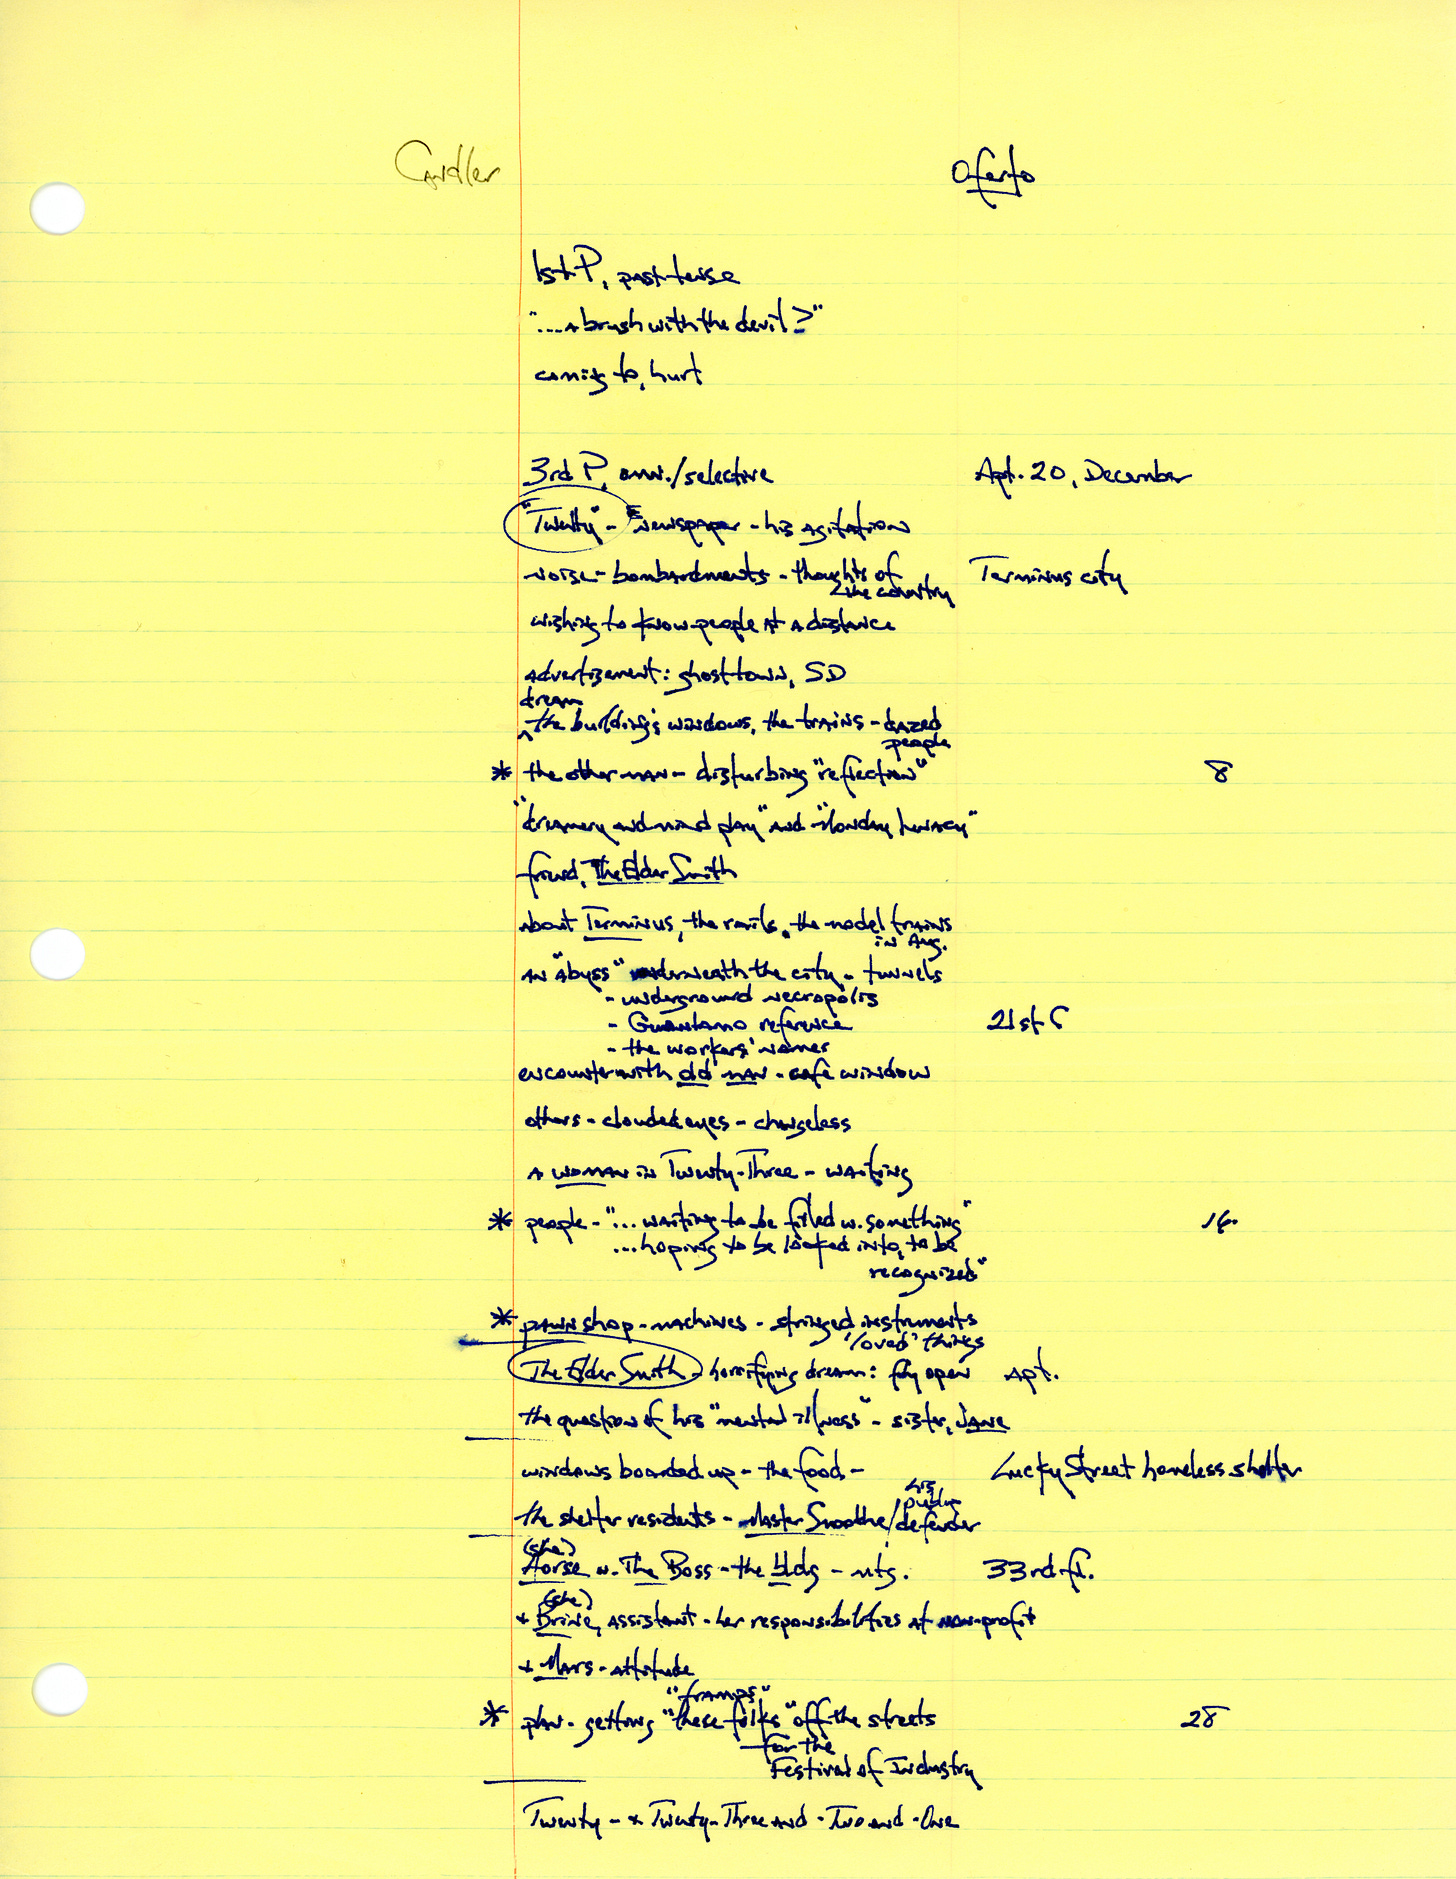 Candler Oferto
1st P, past tense
"...a brush with the devil?"
coming to, hurt
3rd P, omn./selective Apt. 20, December
"Twenty" - newspaper - his agitation
noise - bombardments - thoughts of
the country Terminus city
wishing to know people at a distance
advertizement: ghost town, SD
dream
^ the building's windows, the trains - dazed
people
* the other man - disturbing "reflection" 8
"dreamery and mind play" and "Monday lunacy"
friend, The Elder Smith
about Terminus, the rails, the model trains
in Aug.
an "abyss" underneath the city - tunnels
- underground necropolis
- Guantamo reference 21st C
- the workers' names
encounter with old man - cafe window
others - clouded eyes - changeless
a woman in Twenty-Three - waiting
* people - "... waiting to be filled w. something" 16
...hoping to be looked into, to be
recognized"
* pawn shop - machines - stringed instruments
"loved" things
The Elder Smith - horrifying dream: fly open Apt.
the question of his "mental illness" - sister, Jane
windows boarded up - the food - Lucky Street homeless shelter
his
public
the shelter residents - Master Smoothe/defender
(she)
Horse w. The Boss - the bldg - mtg. 33rd fl.
(she)
+ Brine, assistant - her responsibilities at non-profit
+ Mars - attitude
"tramps"
* plan - getting "these folks" off the streets 28
for the
Festival of Industry
Twenty - + Twenty-Three and -Two and -One